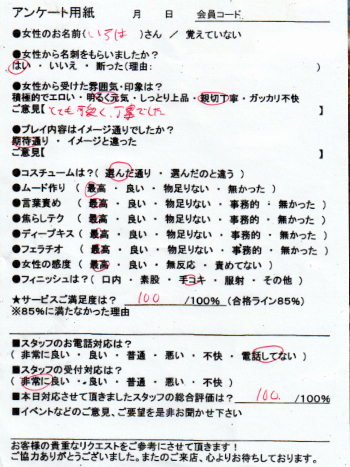 アンケート用紙　　月　　日　会員コード
●女性のお名前(いろは)さん　／　覚えていない
●女性から名刺をもらいましたか？
はい　・　いいえ　・　断った(理由:　　　　)
●女性から受けた雰囲気・印象は？
積極的でエロい・明るく元気・しっとり上品・親切丁寧・ガッカリ不快
ご意見【とても良く、丁寧でした
●プレイ内容はイメージ通りでしたか？
期待通り　・　イメージと違った
ご意見【　　　　】
●コスチュームは？(　選んだ通り　・　選んだのと違う　)
●ムード作り　(　最高　・　良い　・　物足りない　・　無かった　)
●言葉責め　(　最高　・　良い　・　物足りない　・　事務的　・　無かった　)
●焦らしテク　(　最高　・　良い　・　物足りない　・　事務的　・　無かった　)
●ディープキス(　最高　・　良い　・　物足りない　・　事務的　・　無かった　)
●フェラチオ　(　最高　・　良い　・　物足りない　・　事務的　・　無かった　)
●女性の感度　(　最高　・　良い　・　無反応　・　責めてない　)
●フィニッシュは？(　口内　・　素股　・　手コキ　・　服射　・　その他　)
★サービスご満足度は？　100　/100%　(合格ライン85%)
※85%に満たなかった理由
■スタッフのお電話対応は？
(　非常に良い　・　良い　・　普通　・　悪い　・　不快　・　電話してない　)
■スタッフの受付対応は？
(　非常に良い　・　良い　・　普通　・　悪い　・　不快　)
■本日対応させて頂きましたスタッフの総合評価は？　100　/100%
■イベントなどのご意見、ご要望を是非お聞かせ下さい
お客様の貴重なリクエストをご参考にさせて頂きます！
ご協力ありがとうございました。またのご来店、心よりお待ちしております。